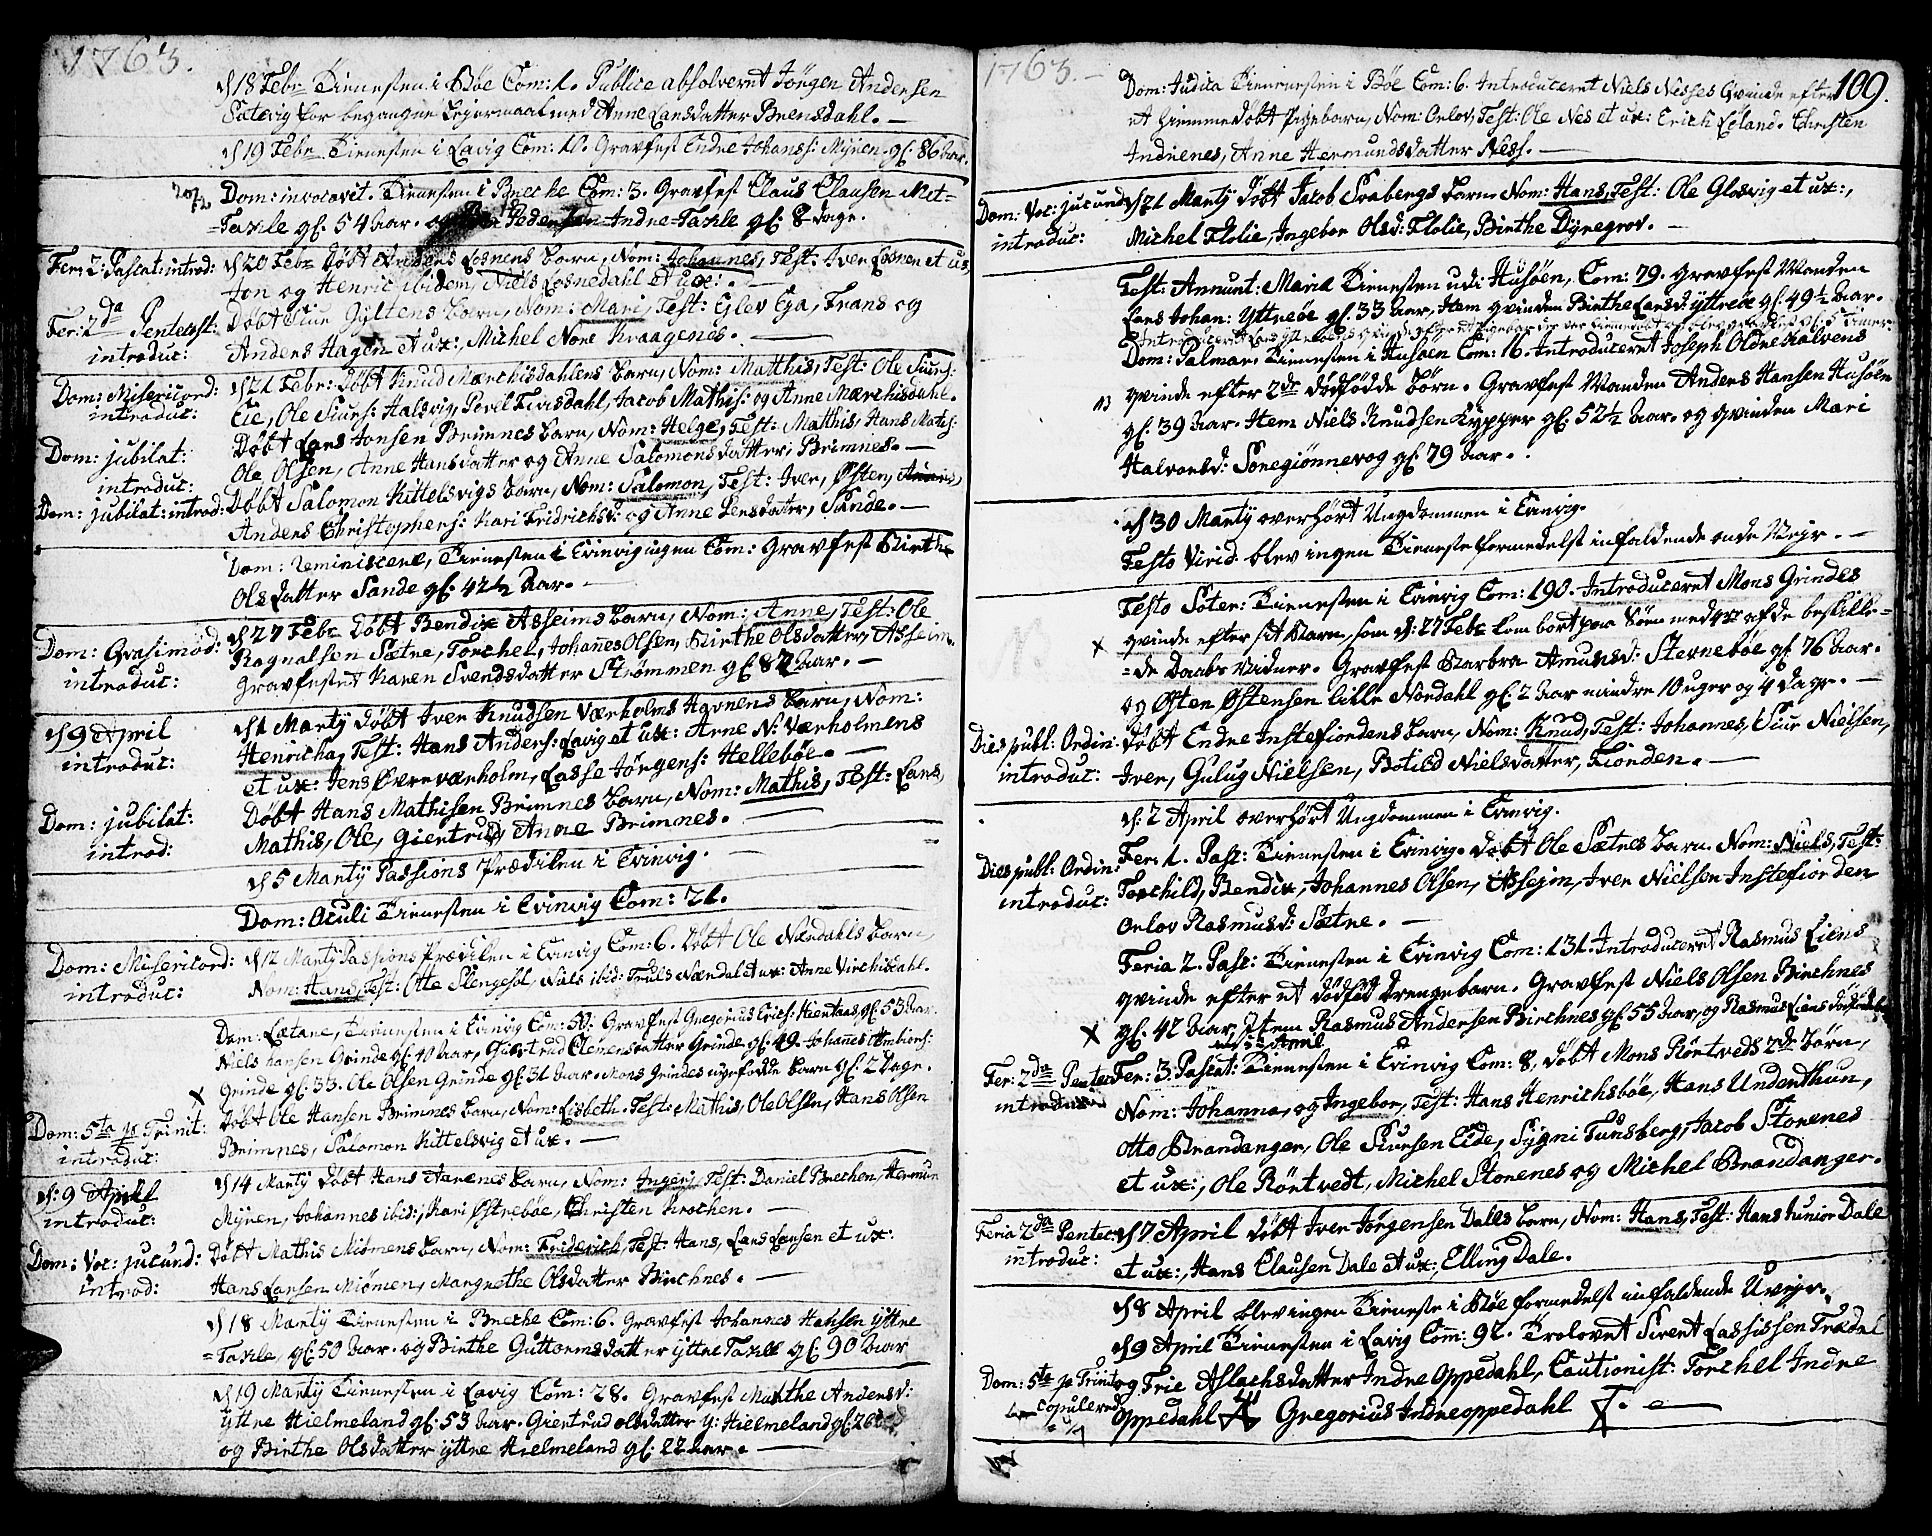 1763.
d/18 Febr Tienesten i Böe Com: 1. Publice absolveret Jörgen Andersen
Sætevig for begangne Lejermaal med Anne Larsdatter Brensdahl. —
d/19 Febr Tienesten i Lavig Com: 10. Gravfest Endre Johans: Myren gl: 86 Aar.
20/2 Dom: invocavit. Tienesten i Breche Com: 3. Gravfest Claus Clausen Mit=
=Taxle gl: 54 Aar. og Peder Indre-Taxle gl: 8 dage.
Fer: 2: Pascat: introd: d/20 Febr Döbt Losnens barn, Nom: Johannes, Test: Iver Losnen et ux,
Jon og Henric ibidem, Niels Losnedahl et ux: . —
Fer: 2da Pentecost: introduc: Döbt Siur Gyltens barn, Nom: Mari, Test: Elev Eja, Frans og
Anders Hagen et ux:, Michel Nore Kraagenes. —
Dom: Misericord: introduc: d/21 Febr: Döbt Knud Mærchisdahlens barn, Nom: Matthis, Test: Ole Siurs:
Eie, Ole Siurs: Halsvig, Povel Tverisdahl, Jacob Mathis: og Anne Mærchisdahl.
Dom: jubilat: introduc: Döbt Lars Jonsen Brimnes barn, Nom: Helge, Test: Matthis, Hans Mats:
Ole Olsen, Anne Hansdatter og Anne Salomonsdatter, Brimnes. —
Dom: jubilat: introd: Döbt Salomon Kittelsvigs barn, Nom: Salomon, Test: Iver, Østen,
Anders Christophers: Kari Fridrichsd: og Anne Jensdatter, Sande. —
Dom: Reminiscere, Tienesten i Evinvig ingen Com: Gravfest Birthe
Olsdatter Sande gl: 42½ Aar. —
Dom: Qvasimod: introduc: d/27 Febr Döbt Bendix Asseims barn, Nom: Anne, Test: Ole
Ragnalsen Sætre, Torchel, Johanes Olsen, Birthe Olsdatter, Asseim.
Gravfestet Karen Svendsdatter Strömmen gl: 82 Aar. —
d/9 April introduc: d/1 Martij Döbt Iver Knudsen Værholms Havnens barn, Nom:
Henricha, Test: Hans Anders: Lavig et ux: Arne N: Værholmens
et ux: Jens Øvreværholm, Lasse Jörgens: Helleböe. —
Dom: jubilat: introd: Döbt Hans Mathisen Brimnes barn, Nom: Mathis, Test: Lars,
Mathis, Ole, Giertrud, Anne Brimnes. —
d/5 Martij Passions Prædiken i Evinvig. —
Dom: Oculi Tienesten i Evinvig Com: 21.
Dom: Misericord: introduc: d/12 Martij Passions Prediken i Evinvig Com: 6. Döbt Ole Nærdahls barn,
Nom: Hans, Test: Otte Slengesol, Niels ibid: Truls Nærdal et ux: Anne Virchisdahl.
Dom: Lætare, Tienesten i Evinvig Com: 50: Gravfest Gregorius Erichs: Hientaas, gl: 53 Aar.
Niels Hansen Grinde gl: 40 Aar, Giertrud Clemensdatter Grinde, gl: 49. Johannes Ambiors:
x Grinde gl: 33. Ole Olsen Grinde gl: 31 Aar. Mons Grindes nyefødde barn gl: 2 Dage.
Dom: 5ta p Trinit: introduc: Döbt Ole Hansen Brimnes barn, Nom: Lisbeth. Test: Mathis, Ole Olsen, Hans Olsen
Brimnes, Salomon Kittelsvig et ux. —
d: 9 April introduc: d/14 Martij Döbt Hans Arenes barn, Nom: Ingeri, Test: Daniel Brechen, Hermun
Myren, Johannes ibid:, Kari Østreböe, Christen Krochen. —
Dom: Voc: jucund: introd: Döbt Mathis Miömens barn, Nom: Friderich, Test: Hans, Lars Larsen et ux:
Hans Larsen Miömen, Margrethe Olsdatter Birchnes. —
d/18 Martij Tienesten i Breche Com: 6. Gravfest Johannes Hansen yttre
=Taxle, gl: 50 Aar. og Birthe Guttormsdatter yttre Taxle gl: 90 Aar
d/19 Martij Tienesten i Lavig Com: 28. Gravfest Marthe Andersd:
yttre Hielmeland gl: 53 Aar. Giertrud Olsdatter y: Hielmeland gl: 26
og Birthe Olsdatter yttre Hielmeland gl: 22 Aar. —
1763. —
109.
Dom: Judica Tienesten i Böe Com: 6. Introduceret Niels Nesses Qvinde efter
et hiemmedöbt Pigebarn, Nom: Orlov, Test: Ole Nes et ux: Erich Leland. Christen
Indrenes, Anne Hermundsdatter Ness. —
Dom: Voc: jucund introduc: d/21 Martij Döbt Jacob Svabergs barn Nom: Hans, Test: Ole Glosvig et ux:,
Michel Flolie, Ingebor Olsd: Flolie, Birthe Dyregrov. —
Fest: Annunt: Mariæ Tienesten udi Husöen, Com: 79. Gravfest Manden
Lars Johan: Yttreöe gl: 33 Aar, Item qvinden Birthe Larsd: yttreöe gl: 49½ Aar.
Introduceret Lars Yttreöens qvinde efter et Pigebarn der var hiemmedöbt gl: 5 timer.
Dom: Palmar: Tienesten i Husöen Com: 16. Introduceret Joseph Oldre Kalvens
qvinde efter 2de dödfödde börn. Gravfest Manden Anders Hansen Husöen
gl: 39 Aar. Item Niels Knudsen Kypper gl: 52½ Aar. og qvinden Mari
Halvorsd: Soregiönnevog gl: 79 Aar. .
d/30 Martij overhört Ungdommen i Evinvig.
Festo Virid: blev ingen Tieneste formedelst infaldende onde Vejr. —
Festo Soter: Tienesten i Evinvig Com: 190. Introduceret Mons Grindes
x qvinde efter sit Barn, som d: 27 Febr kom bort paa Söen med 4re af de beskikke=
=de Daabs Vidner. Gravfest Barbra Amunsd: Sterneböe gl: 76 Aar.
og Østen Østensen lille Nordahl gl: 2 Aar mindre 10 uger og 4 Dage. —
Dies publ: Ordin: introduc: Döbt Endre Instefiordens barn, Nom: Knud, Test: Johannes, Siur Nielsen,
Iver, Gulug Nielsen, Botild Nielsdatter, Fiorden. —
d: 2 April overhört Ungdommen i Evinvig.
Dies publ: Ordin: introduc: Fer: 1. Past: Tienesten i Evinvig. Döbt Ole Sætres barn. Nom: Niels, Test:
Torchild, Bendix, Johannes Olsen, Assejm, Iver Nielsen Instefiorden
Orlov Rasmusd: Sætre. —
Feria 2. Past: Tienesten i Evinvig Com: 131. Introduceret Rasmus Liens
qvinde efter et dödföd drengebarn. Gravfest Niels Olsen Birchnes
x gl: 42 Aar, Item Rasmus Andersen Birchnes gl: 55 Aar, og Rasmus Liens dödfödde barn
Fer: 2da Pentec introduc: Fer: 3. Pascat: Tienesten i Evinvig Com: 8, Döbt Mons Rörtveds 2de Börn,
Nom: Johanna, og Ingebor, Test: Hans Henrichsböe, Hans Underthun,
Otto Brandanger, Ole Siursen Eide, Sygni Tunsberg, Jacob Storenes
et ux:, Ole Rörtvedt, Michel Storenes og Michel Brandanger.
Feria 2da Pentec: introduc: d/7 April Döbt Iver Jörgensen Dales barn, Nom: Hans, Test: Hans Junior Dale
et ux:, Hans Clausen Dale et ux:, Elling Dale.
d/8 April blev ingen Tieneste i Böe formedelst infaldende Uvejr.
d/9 April Tienesten i Lavig Com: 92. Trolovet Sivert Lassissen Trædal
Dom: 5te p Trinit copulered og Trie Aslachsdatter Indre Oppedahl, Cautionist: Torchel Indre
Oppedahl Gregorius Indreoppedahl